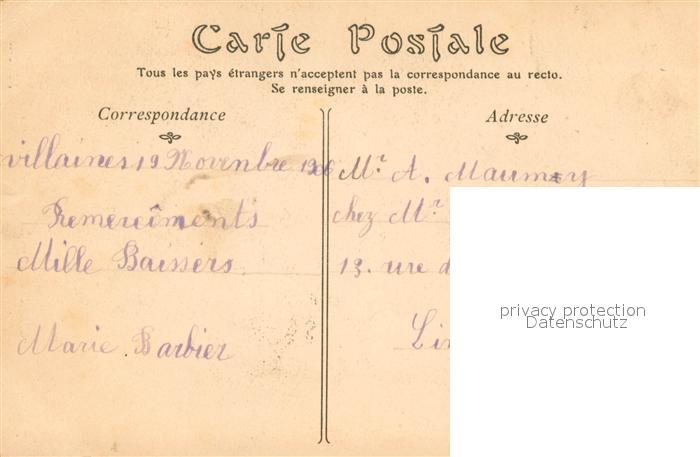 Carte Postale
Tous les pays étrangers n'acceptent pas la correspondance au recto.
Se renseigner à la poste.
Correspondance
villaines 19 Novenbre 1906
Remerciments
Mille Baissers
Marie Barbier
Adresse
Mr A. Maumey
chez Mr
13. rue d
Lin
privacy protection
Datenschutz